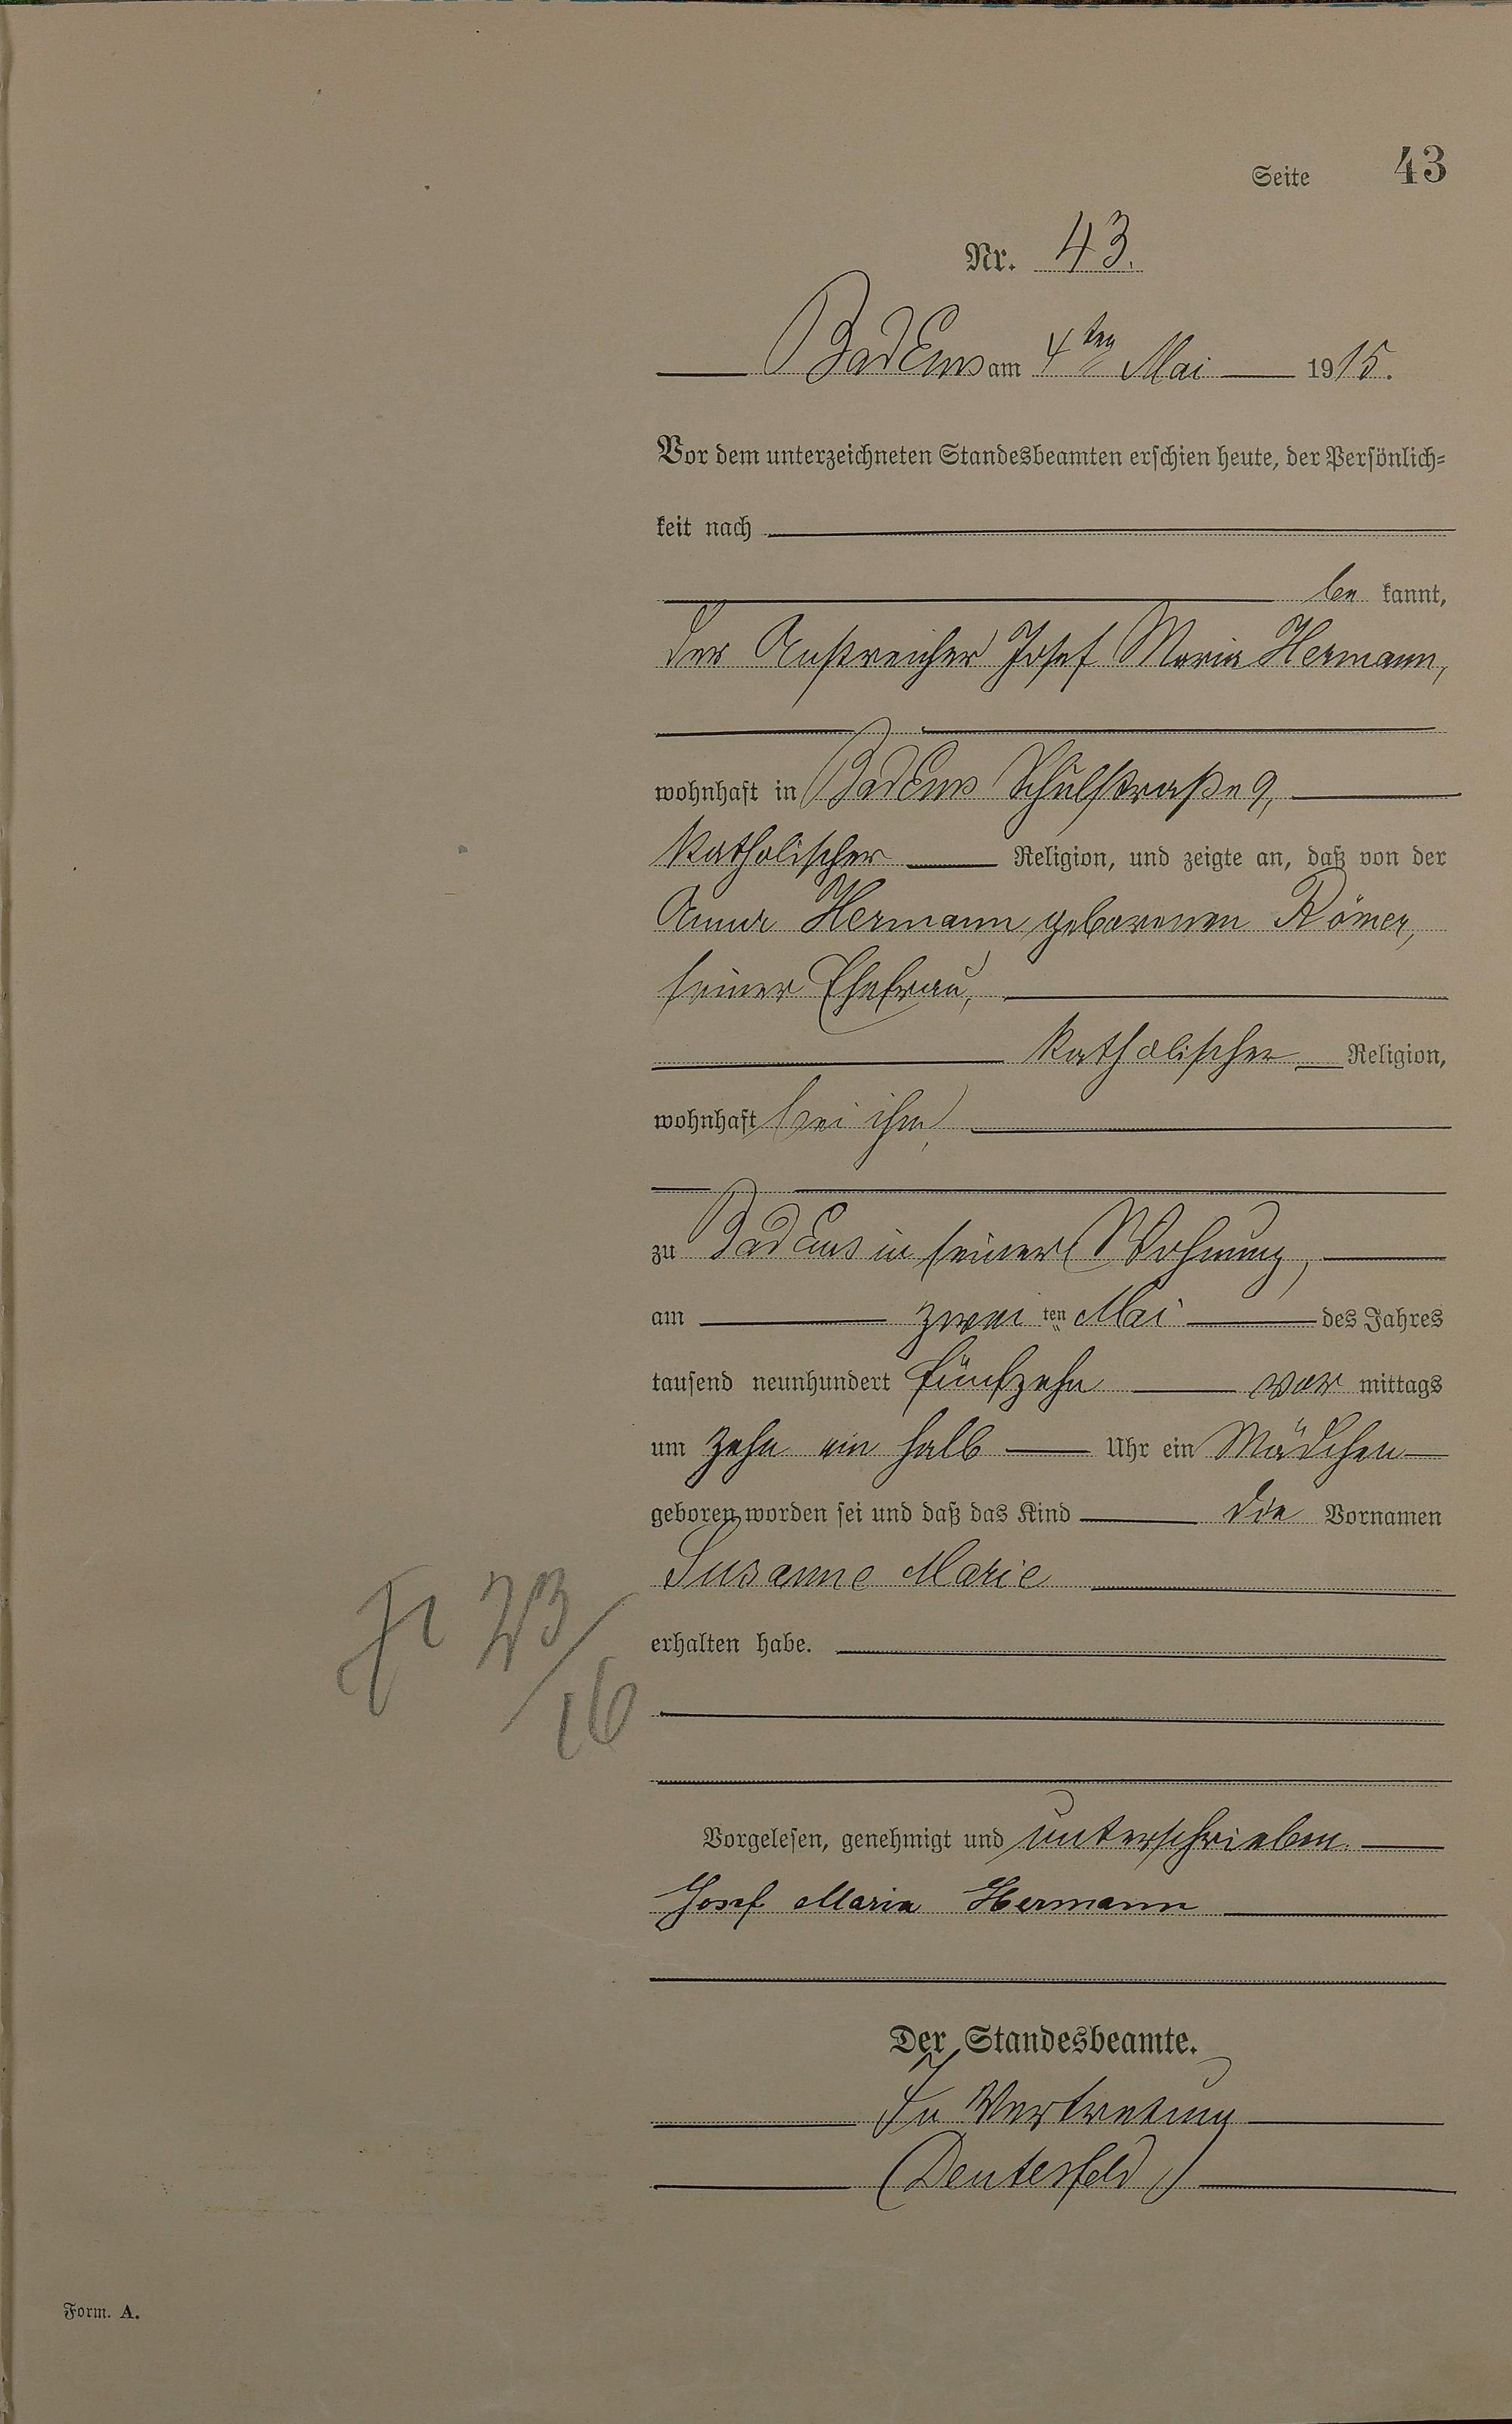 Seite 43
Nr. 43.
Bad Ems am 4ten Mai 1915.
Vor dem unterzeichneten Standesbeamten erschien heute, der Persönlich=
keit nach
be kannt,
der Anstreicher Josef Maria Hermann,
wohnhaft in Bad Ems Schulstraße 9,
katholischer Religion, und zeigte an, daß von der
Anna Hermann geborenen Römer,
seiner Ehefrau,
katholischer Religion,
wohnhaft bei ihm,
zu Bad Ems in seiner Wohnung,
am zwei ten Mai des Jahres
tausend neunhundert fünfzehn vor mittags
um zehn ein halb Uhr ein Mädchen
geboren worden sei und daß das Kind die Vornamen
Susanne Marie
erhalten habe.
23/16
Vorgelesen, genehmigt und unterschrieben.
Josef Maria Hermann
Der Standesbeamte.
In Vertretung
(Deutesfeld)
Form. A.